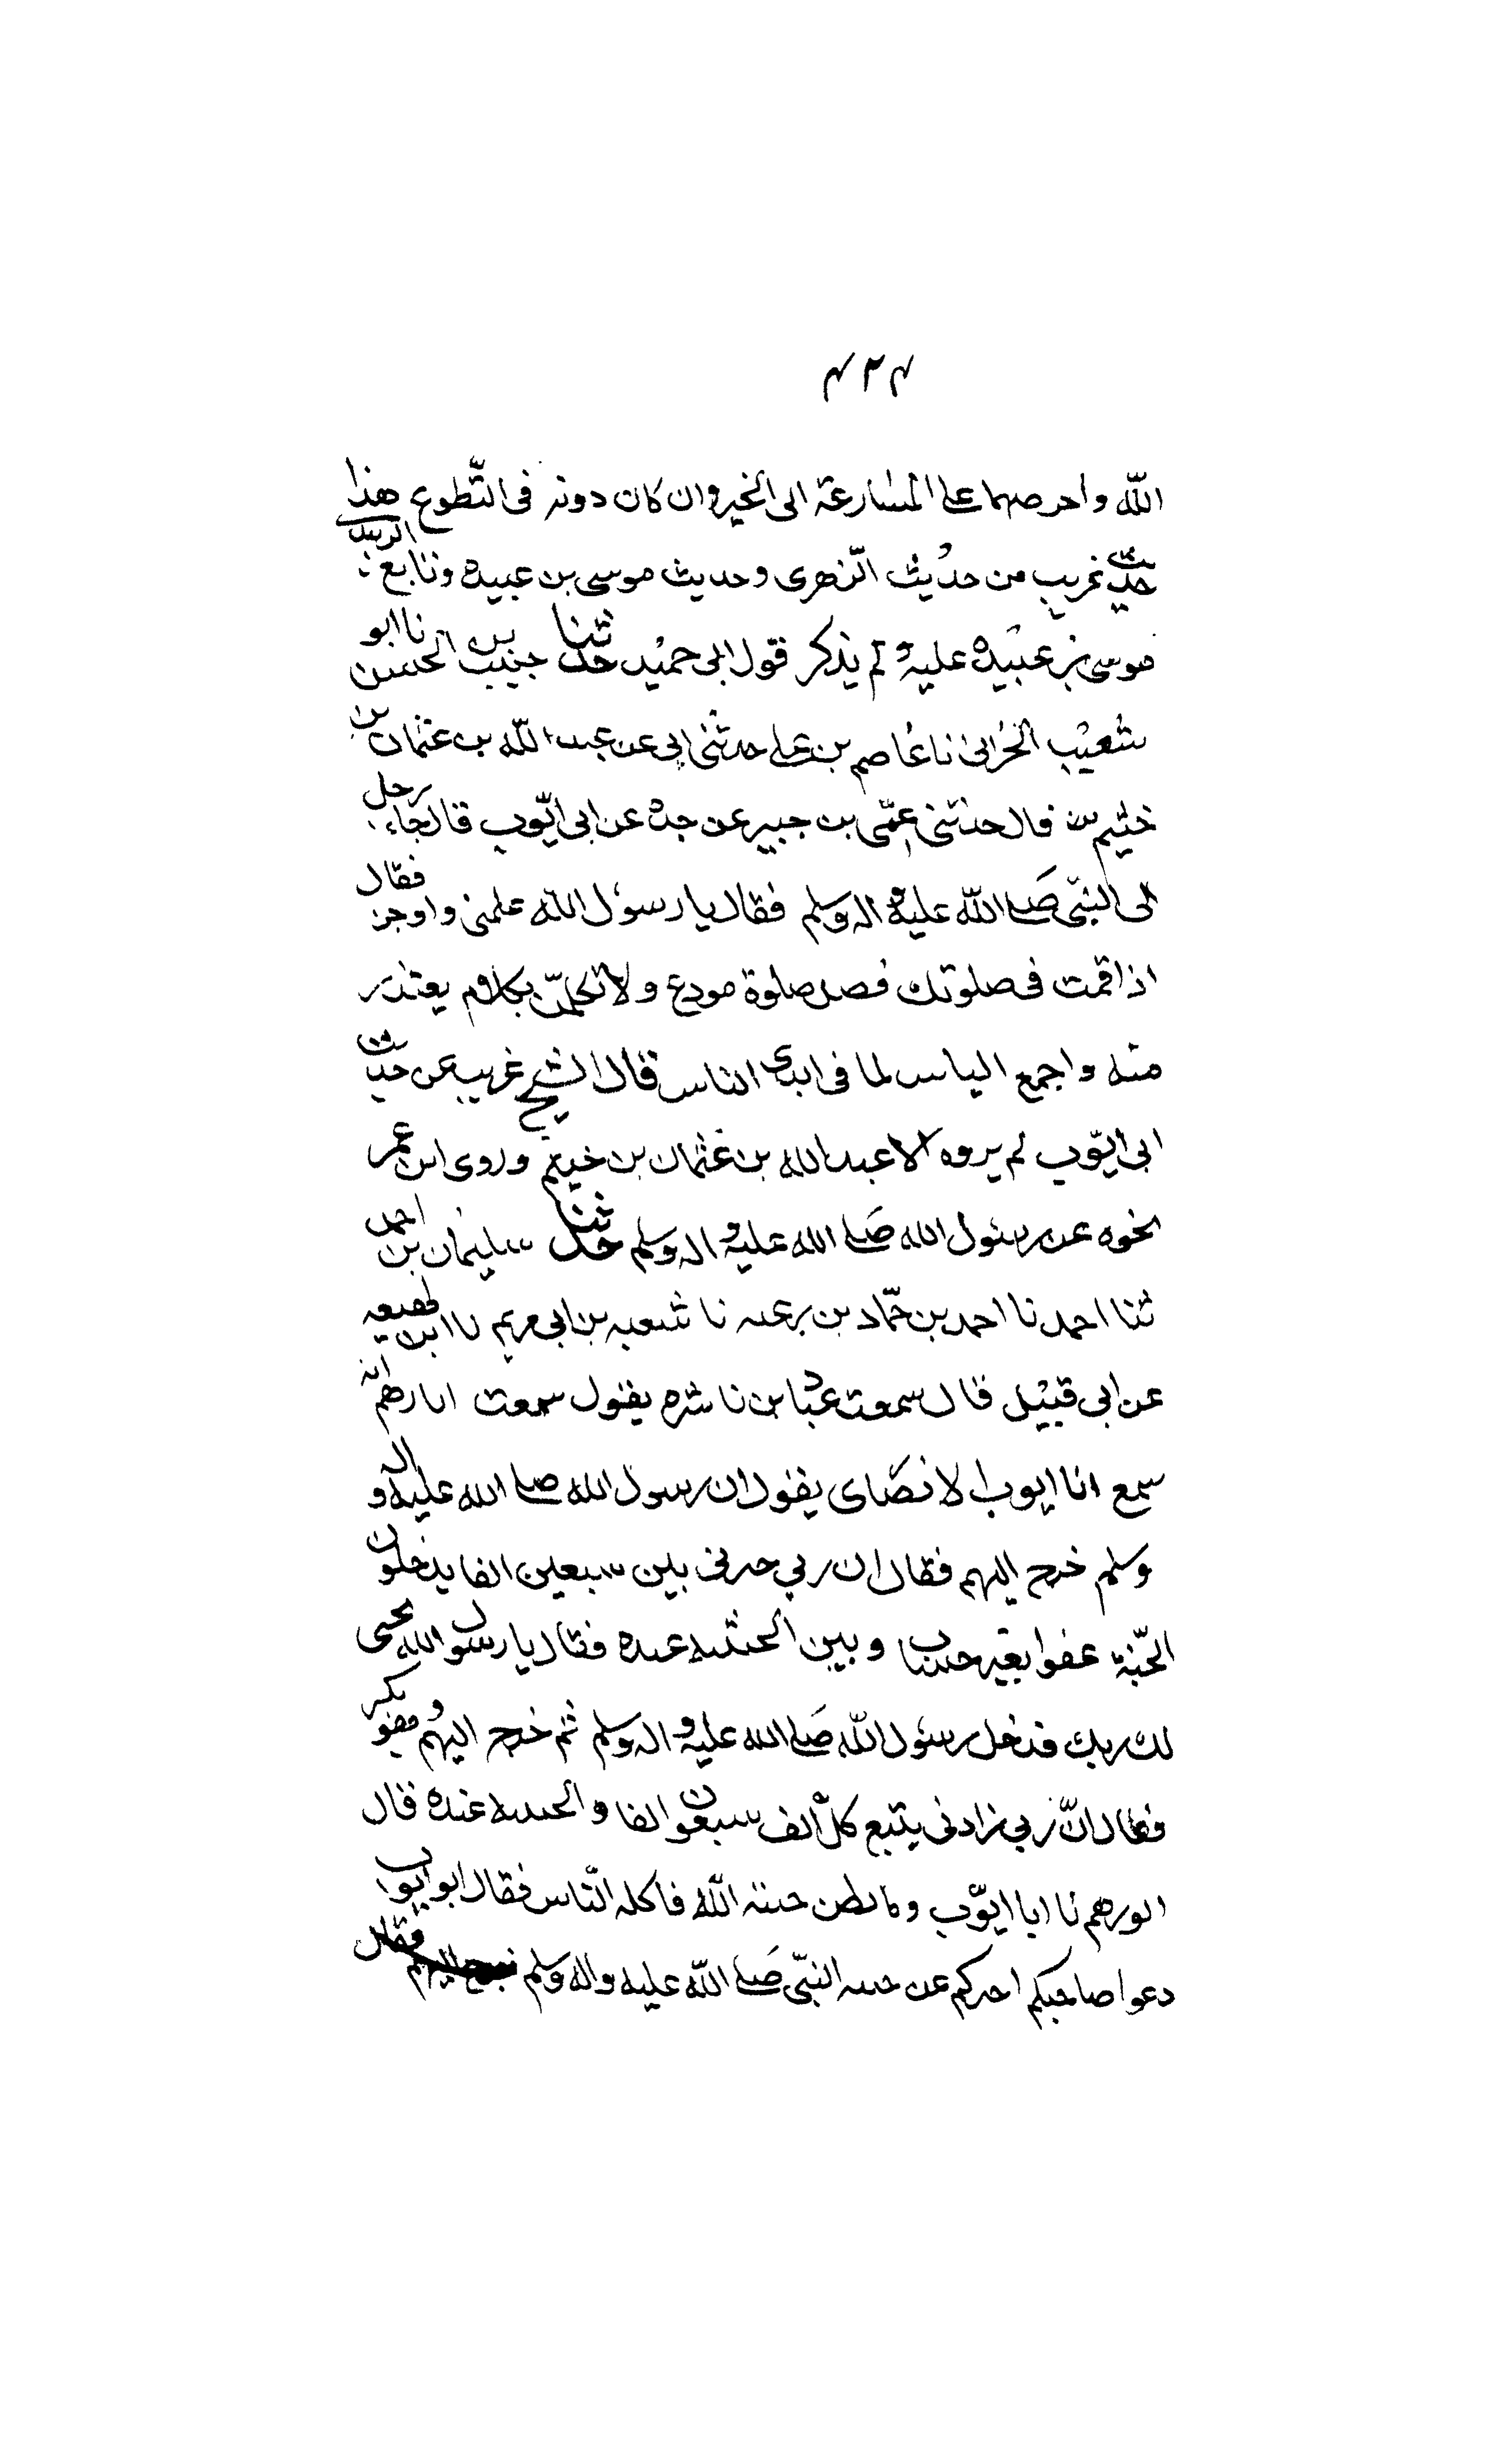 ٤٢٤
الله واحرصهما على المسارعة الى الخير وان كان دونه فى التطوع هذا
حديث غريب من حديث الزهرى وحديث موسى بن عبيدة وتابع الزبيدى
موسى بن عبيدة عليه ولم يذكر قول ابى حميد حدثنا حبيب بن الحسن نا ابو
شعيب الحرانى نا عاصم بن على حدثنى ابى عن عبد الله بن عثمان بن
خثيم قال حدثنى عمى بن جبير عن جده عن ابى ايوب قال جاء رجل
الى النبى صلى الله عليه واله وسلم فقال يا رسول الله علمنى واوجز فقال
اذا قمت فى صلوتك فصل صلوة مودع ولا تكلمن بكلام يعتذر
منه واجمع الياس لما فى ايدى الناس قال الشيخ غريب من حديث
ابى ايوب لم يروه الا عبد الله بن عثمان بن خثيم وروى ابن عمر
نحوه عن رسول الله صلى الله عليه واله وسلم حدثنا سليمان بن احمد
ثنا احمد نا احمد بن حماد بن نا شعبه بن ابى مريم نا ابن لهيعه
عن ابى قبيل قال سمعت عباد بن ناشره يقول سمعت ابا رهم انه
سمع ابا ايوب الانصاى يقول ان رسول الله صلى الله عليه واله و
وسلم خرج اليهم فقال ان ربي بين سبعين الفا يدخلون
الجنة عفوا بغير حساب وبين عنده فقال يا رسول الله
لك ربك فدخل رسول الله صلى الله عليه واله وسلم ثم خرج اليهم وهو يكبر
فقال ان ربي زادنى يتبع كل الف سبعون الفا عنده قال
ابو رهم نا ابا ايوب وما الله فاكله الناس فقال ابو ايوب
دعوا صاحبكم عن النبى صلى الله عليه واله وسلم فقال